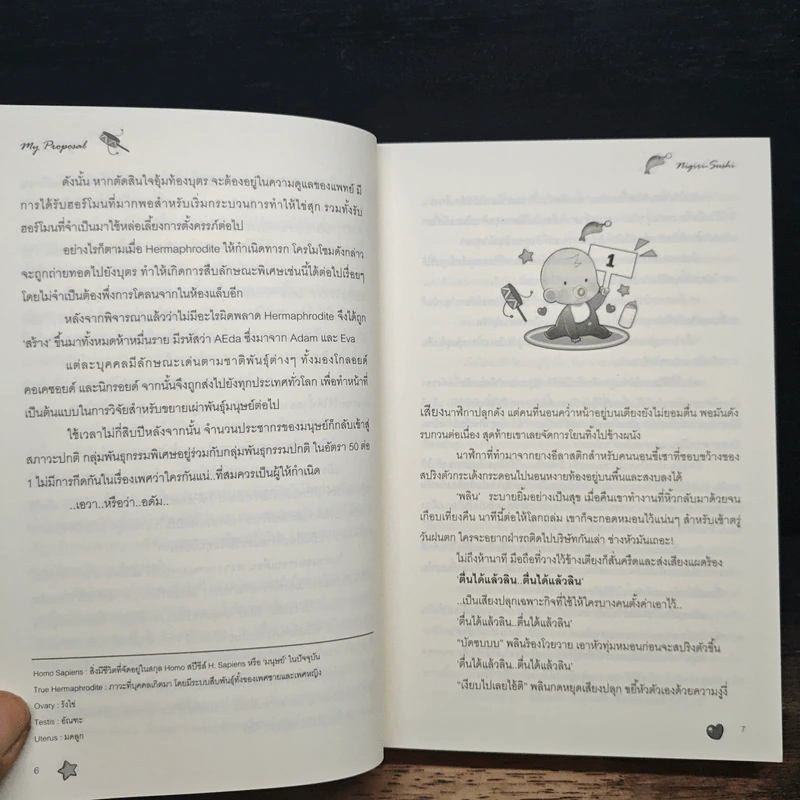 My Proposal
ดังนั้น หากตัดสินใจอุ้มท้องบุตร จะต้องอยู่ในความดูแลของแพทย์ มี
การได้รับฮอร์โมนที่มากพอสำหรับเริ่มกระบวนการทำให้ไข่สุก รวมทั้งรับ
ฮอร์โมนที่จำเป็นมาใช้หล่อเลี้ยงการตั้งครรภ์ต่อไป
อย่างไรก็ตามเมื่อ Hermaphrodite ให้กำเนิดทารก โครโมโซมดังกล่าว
จะถูกถ่ายทอดไปยังบุตร ทำให้เกิดการสืบลักษณะพิเศษเช่นนี้ได้ต่อไปเรื่อยๆ
โดยไม่จำเป็นต้องพึ่งการโคลนจากในห้องแล็บอีก
หลังจากพิจารณาแล้วว่าไม่มีอะไรผิดพลาด Hermaphrodite จึงได้ถูก
'สร้าง' ขึ้นมาทั้งหมดห้าหมื่นราย มีรหัสว่า AEda ซึ่งมาจาก Adam และ Eva
แต่ละบุคคลมีลักษณะเด่นตามชาติพันธุ์ต่างๆ ทั้งมองโกลอยด์
คอเคซอยด์ และนิกรอยด์ จากนั้นจึงถูกส่งไปยังทุกประเทศทั่วโลก เพื่อทำหน้าที่
เป็นต้นแบบในการวิจัยสำหรับขยายเผ่าพันธุ์มนุษย์ต่อไป
ใช้เวลาไม่กี่สิบปีหลังจากนั้น จำนวนประชากรของมนุษย์ก็กลับเข้าสู่
สภาวะปกติ กลุ่มพันธุกรรมพิเศษอยู่ร่วมกับกลุ่มพันธุกรรมปกติ ในอัตรา 50 ต่อ
1 ไม่มีการกีดกันในเรื่องเพศว่าใครกันแน่..ที่สมควรเป็นผู้ให้กำเนิด
..เอวา..หรือว่า..อดัม..
Homo Sapiens : สิ่งมีชีวิตที่จัดอยู่ในสกุล Homo สปีชีส์ H. Sapiens หรือ 'มนุษย์' ในปัจจุบัน
True Hermaphrodite : ภาวะที่บุคคลเกิดมา โดยมีระบบสืบพันธุ์ทั้งของเพศชายและเพศหญิง
Ovary : รังไข่
Testis : อัณฑะ
Uterus : มดลูก
6
Nigiri Sushi
1
เสียงนาฬิกาปลุกดัง แต่คนที่นอนคว่ำหน้าอยู่บนเตียงยังไม่ยอมตื่น พอมันดัง
รบกวนต่อเนื่อง สุดท้ายเขาเลยจัดการโยนทิ้งไปข้างผนัง
นาฬิกาที่ทำมาจากยางอีลาสติกสำหรับคนนอนขี้เซาที่ชอบขว้างของ
สปริงตัวกระเด้งกระดอนไปนอนหงายท้องอยู่บนพื้นและสงบลงได้
'พลิน' ระบายยิ้มอย่างเป็นสุข เมื่อคืนเขาทำงานที่หิ้วกลับมาด้วยจน
เกือบเที่ยงคืน นาทีนี้ต่อให้โลกถล่ม เขาก็จะกอดหมอนไว้แน่นๆ สำหรับเช้าตรู่
วันฝนตก ใครจะอยากฝ่ารถติดไปบริษัทกันเล่า ช่างหัวมันเถอะ!
ไม่ถึงห้านาที มือถือที่วางไว้ข้างเตียงก็สั่นครืดและส่งเสียงแผดร้อง
'ตื่นได้แล้วลิน..ตื่นได้แล้วลิน'
..เป็นเสียงปลุกเฉพาะกิจที่ใช้ให้ใครบางคนตั้งค่าเอาไว้..
'ตื่นได้แล้วลิน..ตื่นได้แล้วลิน'
"บัดซบบบ" พลินร้องโวยวาย เอาหัวทุ่มหมอนก่อนจะสปริงตัวขึ้น
'ตื่นได้แล้วลิน..ตื่นได้แล้วลิน'
"เงียบไปเลยไอ้ดิ" พลินกดหยุดเสียงปลุก ขยี้หัวตัวเองด้วยความงุ่งี่
7